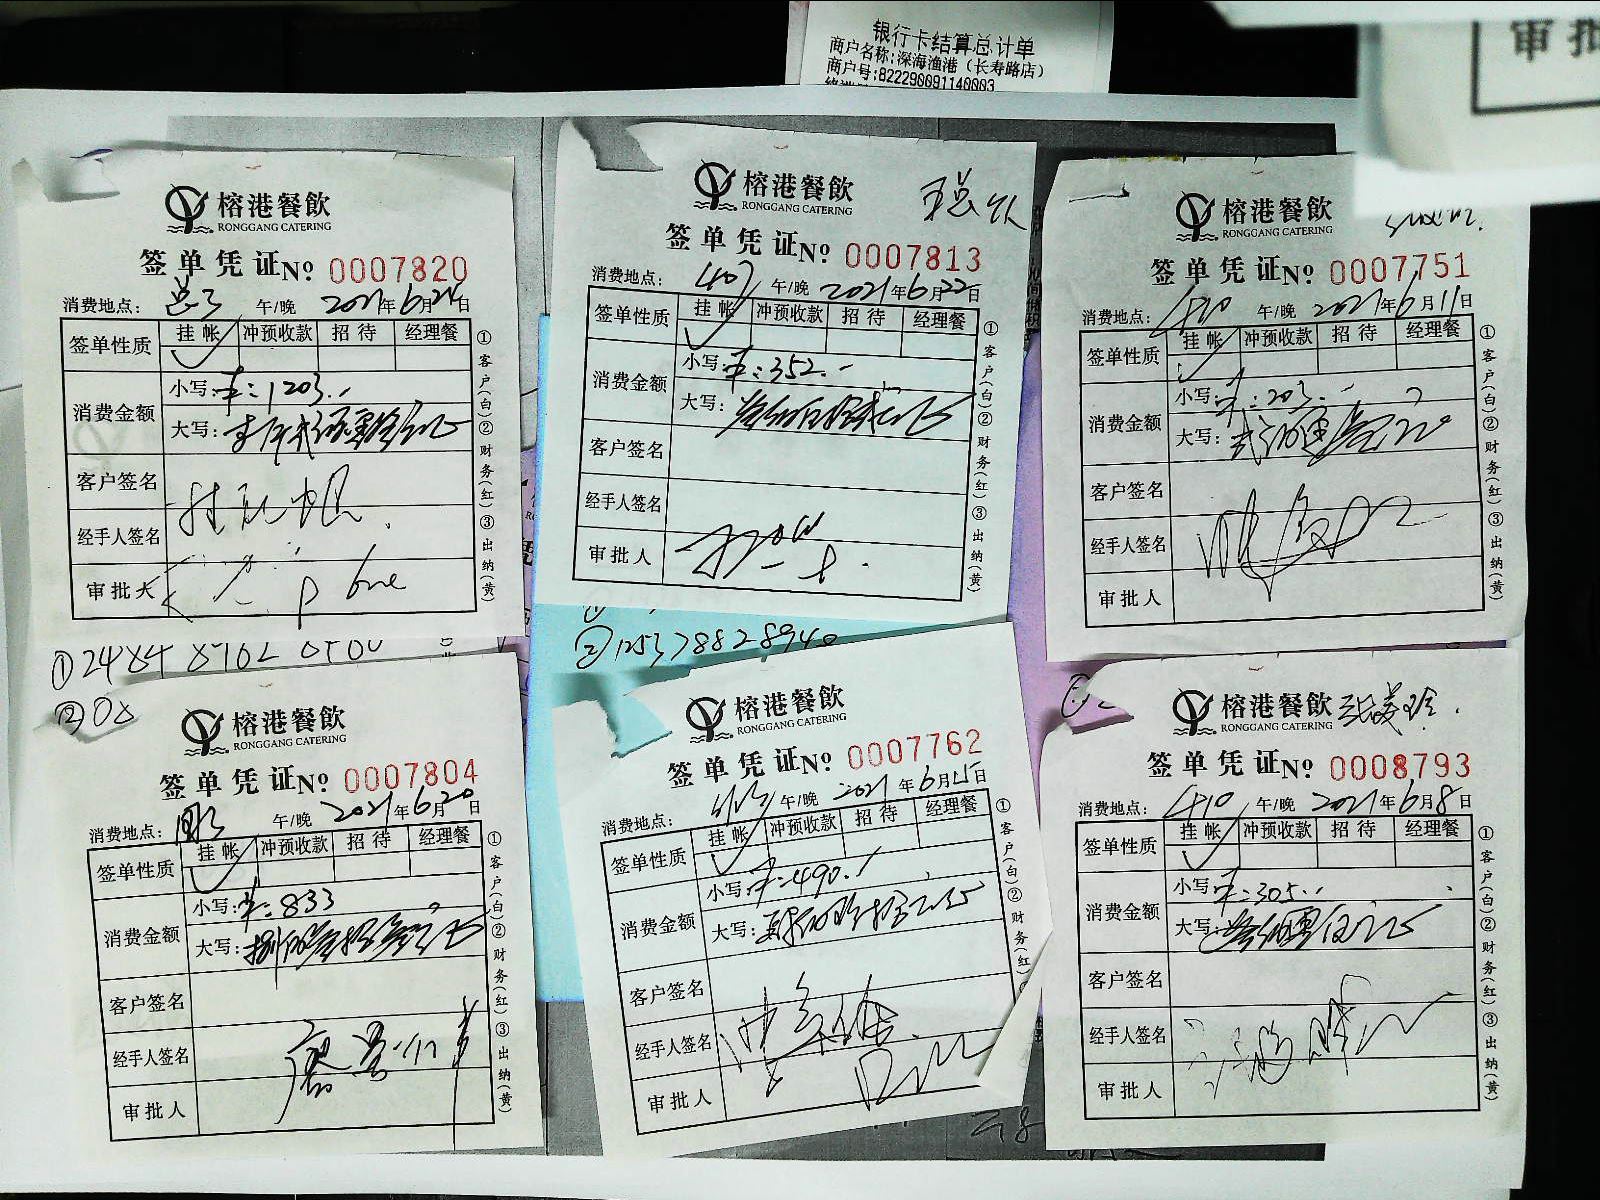 银行卡结算总计单
商户名称:深海渔港（长寿路店）
商户号:822290091140003
审批
榕港餐飲
RONGGANG CATERING
签单凭证Nº 0007820
消费地点: 午/晚 2021年6月24日
签单性质 挂帐 冲预收款 招待 经理餐
消费金额 小写: 1203.-
大写: 壹仟贰佰零叁元正
客户签名
经手人签名
审批人
①客户(白)②财务(红)③出纳(黄)
榕港餐飲
RONGGANG CATERING
签单凭证Nº 0007813
消费地点: 407 午/晚 2021年6月22日
签单性质 挂帐 冲预收款 招待 经理餐
消费金额 小写: 352.-
大写: 叁佰伍拾贰元正
客户签名
经手人签名
审批人
①客户(白)②财务(红)③出纳(黄)
榕港餐飲
RONGGANG CATERING
签单凭证Nº 0007751
消费地点: 410 午/晚 2021年6月11日
签单性质 挂帐 冲预收款 招待 经理餐
消费金额 小写: 203.-
大写: 贰佰零叁元正
客户签名
经手人签名
审批人
①客户(白)②财务(红)③出纳(黄)
②125378828940
榕港餐飲
RONGGANG CATERING
签单凭证Nº 0007804
消费地点: 午/晚 2021年6月20日
签单性质 挂帐 冲预收款 招待 经理餐
消费金额 小写: 833
大写: 捌佰叁拾叁元正
客户签名
经手人签名
审批人
①客户(白)②财务(红)③出纳(黄)
榕港餐飲
RONGGANG CATERING
签单凭证Nº 0007762
消费地点: 午/晚 2021年6月15日
签单性质 挂帐 冲预收款 招待 经理餐
消费金额 小写: 490.-
大写: 肆佰玖拾元正
客户签名
经手人签名
审批人
①客户(白)②财务(红)
榕港餐飲 张美玲
RONGGANG CATERING
签单凭证Nº 0008793
消费地点: 410 午/晚 2021年6月8日
签单性质 挂帐 冲预收款 招待 经理餐
消费金额 小写: 305.-
大写: 叁佰零伍元正
客户签名
经手人签名
审批人
①客户(白)②财务(红)③出纳(黄)